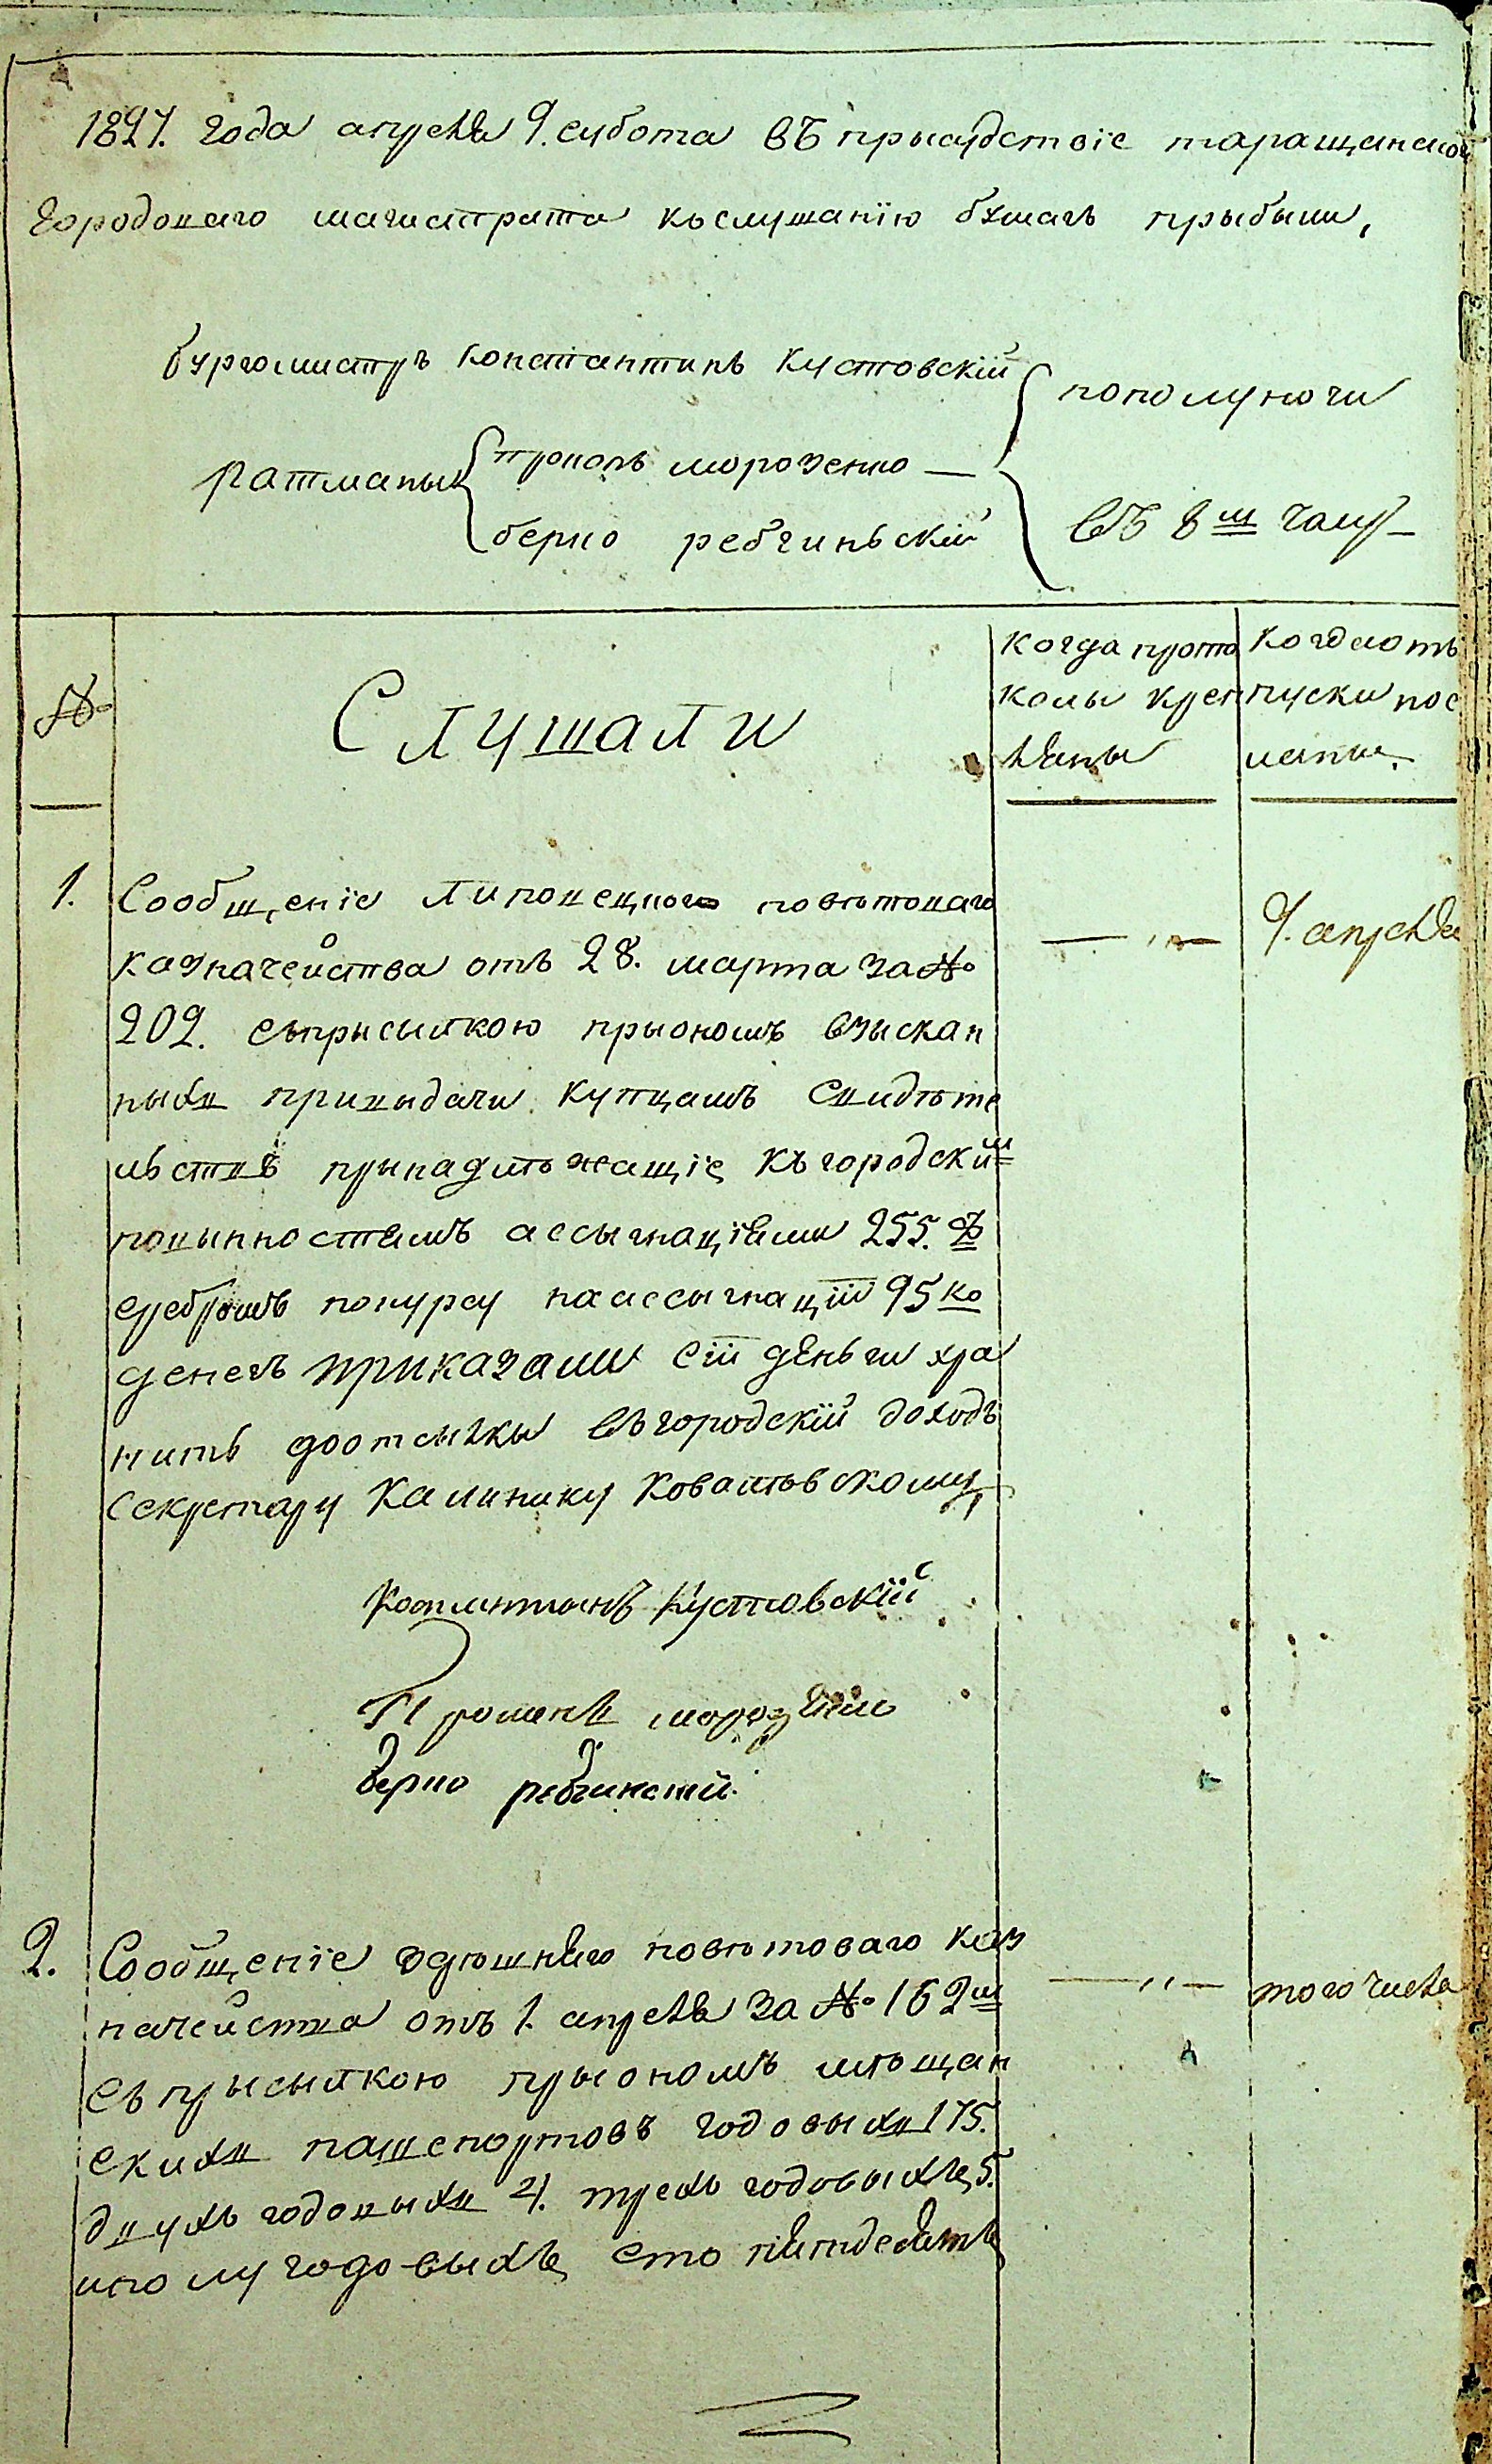 1827. года апреля 9. субота въ прысудствіе таращанскаго
городоваго магистрата къ слушанію бумагъ прыбыли,
бургомистръ константинъ кустовскій
пополуночи
ратманы
прокопъ морозенко —
берко ребчиньскій
въ 8м часу —
№
Слушали
когда прото
колы крен
ляны
когда отъ
пуски пос
ланы.
1.
Сообщеніе Липовецкого повѣтоваго
казначейства отъ 28. марта за №
202. съ прысылкою прыономъ взыскан
ныхъ привыдачи купцамъ свидѣте
льствъ прынадлѣжащіе къ городским
повынностямъ ассыгнаціями 255. р
сребромъ покурсу на ассыгнаціи 95 ко
денегъ приказали сіи деньги хра
нить доотсылкы въ городскій доходъ
секретару Калинику Ковальовскому,
— „ —
9. апреля
Костантинъ Кустовскій
морозенко
Берко ребчинскій
2.
Сообщеніе здѣшняго повѣтоваго каз
начейства отъ 1. апреля за № 162м
съ прысылкою прыономъ мѣщан
скихъ пашспортовъ годовыхъ 175.
двухъ годовыхъ 4. трехъ годовыхъ 5.
иполугодовыхъ сто пятдесятъ
— „ —
того числа